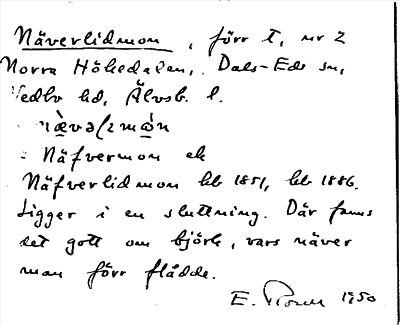 Näverlidmon, förr t, nr 2
Norra Höhedalen, Dals-Eds sn,
Vedbo hd, Älvsb. l.
nä̀vəɽmón
: Näfvermon ek
Näfverlidmon hb 1851, hb 1886.
Ligger i en sluttning. Där fanns
det gott om björk, vars näver
man förr flådde.
E. 1950